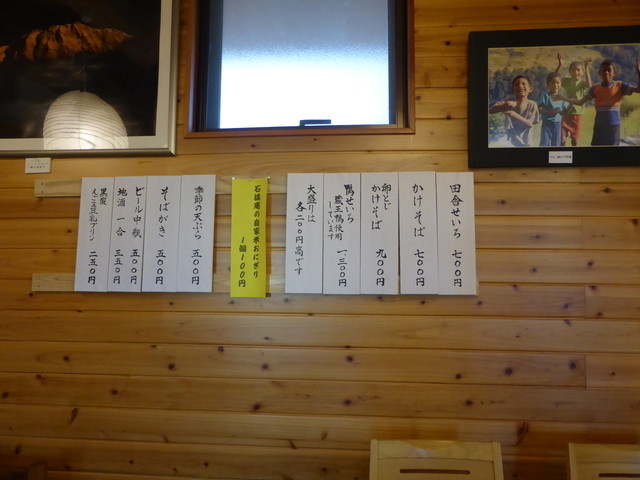 田舎せいろ 七〇〇円
かけそば 七〇〇円
卵とじ
かけそば 九〇〇円
鴨せいろ
蔵王鴨使用
しています 一、三〇〇円
大盛りは
各二〇〇円高です
石橋庵の自家米おにぎり
1個100円
季節の天ぷら 五〇〇円
そばがき 五〇〇円
ビール中瓶 五〇〇円
地酒 一合 三五〇円
黒蜜
えごま豆乳プリン 二五〇円